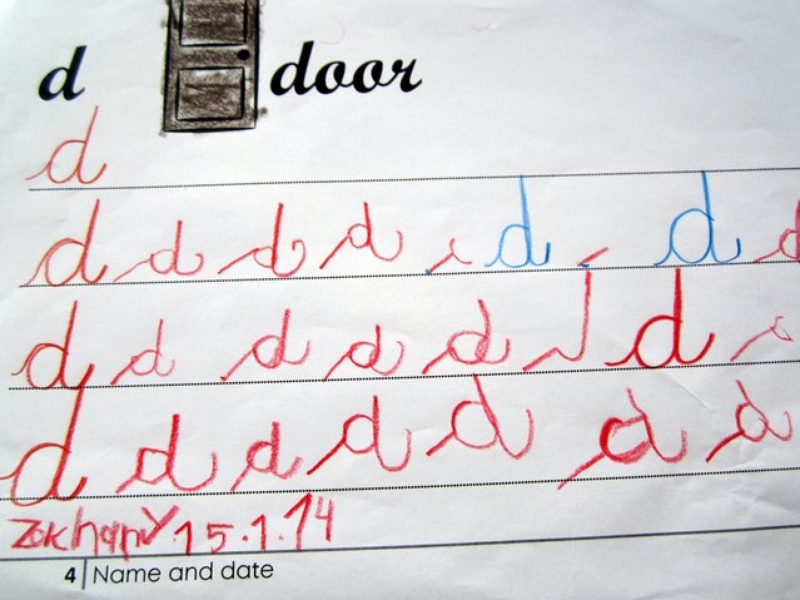 d door
d
d d d d d d d
d d d d d d
d d d d d d d
15.1.14
4 | Name and date